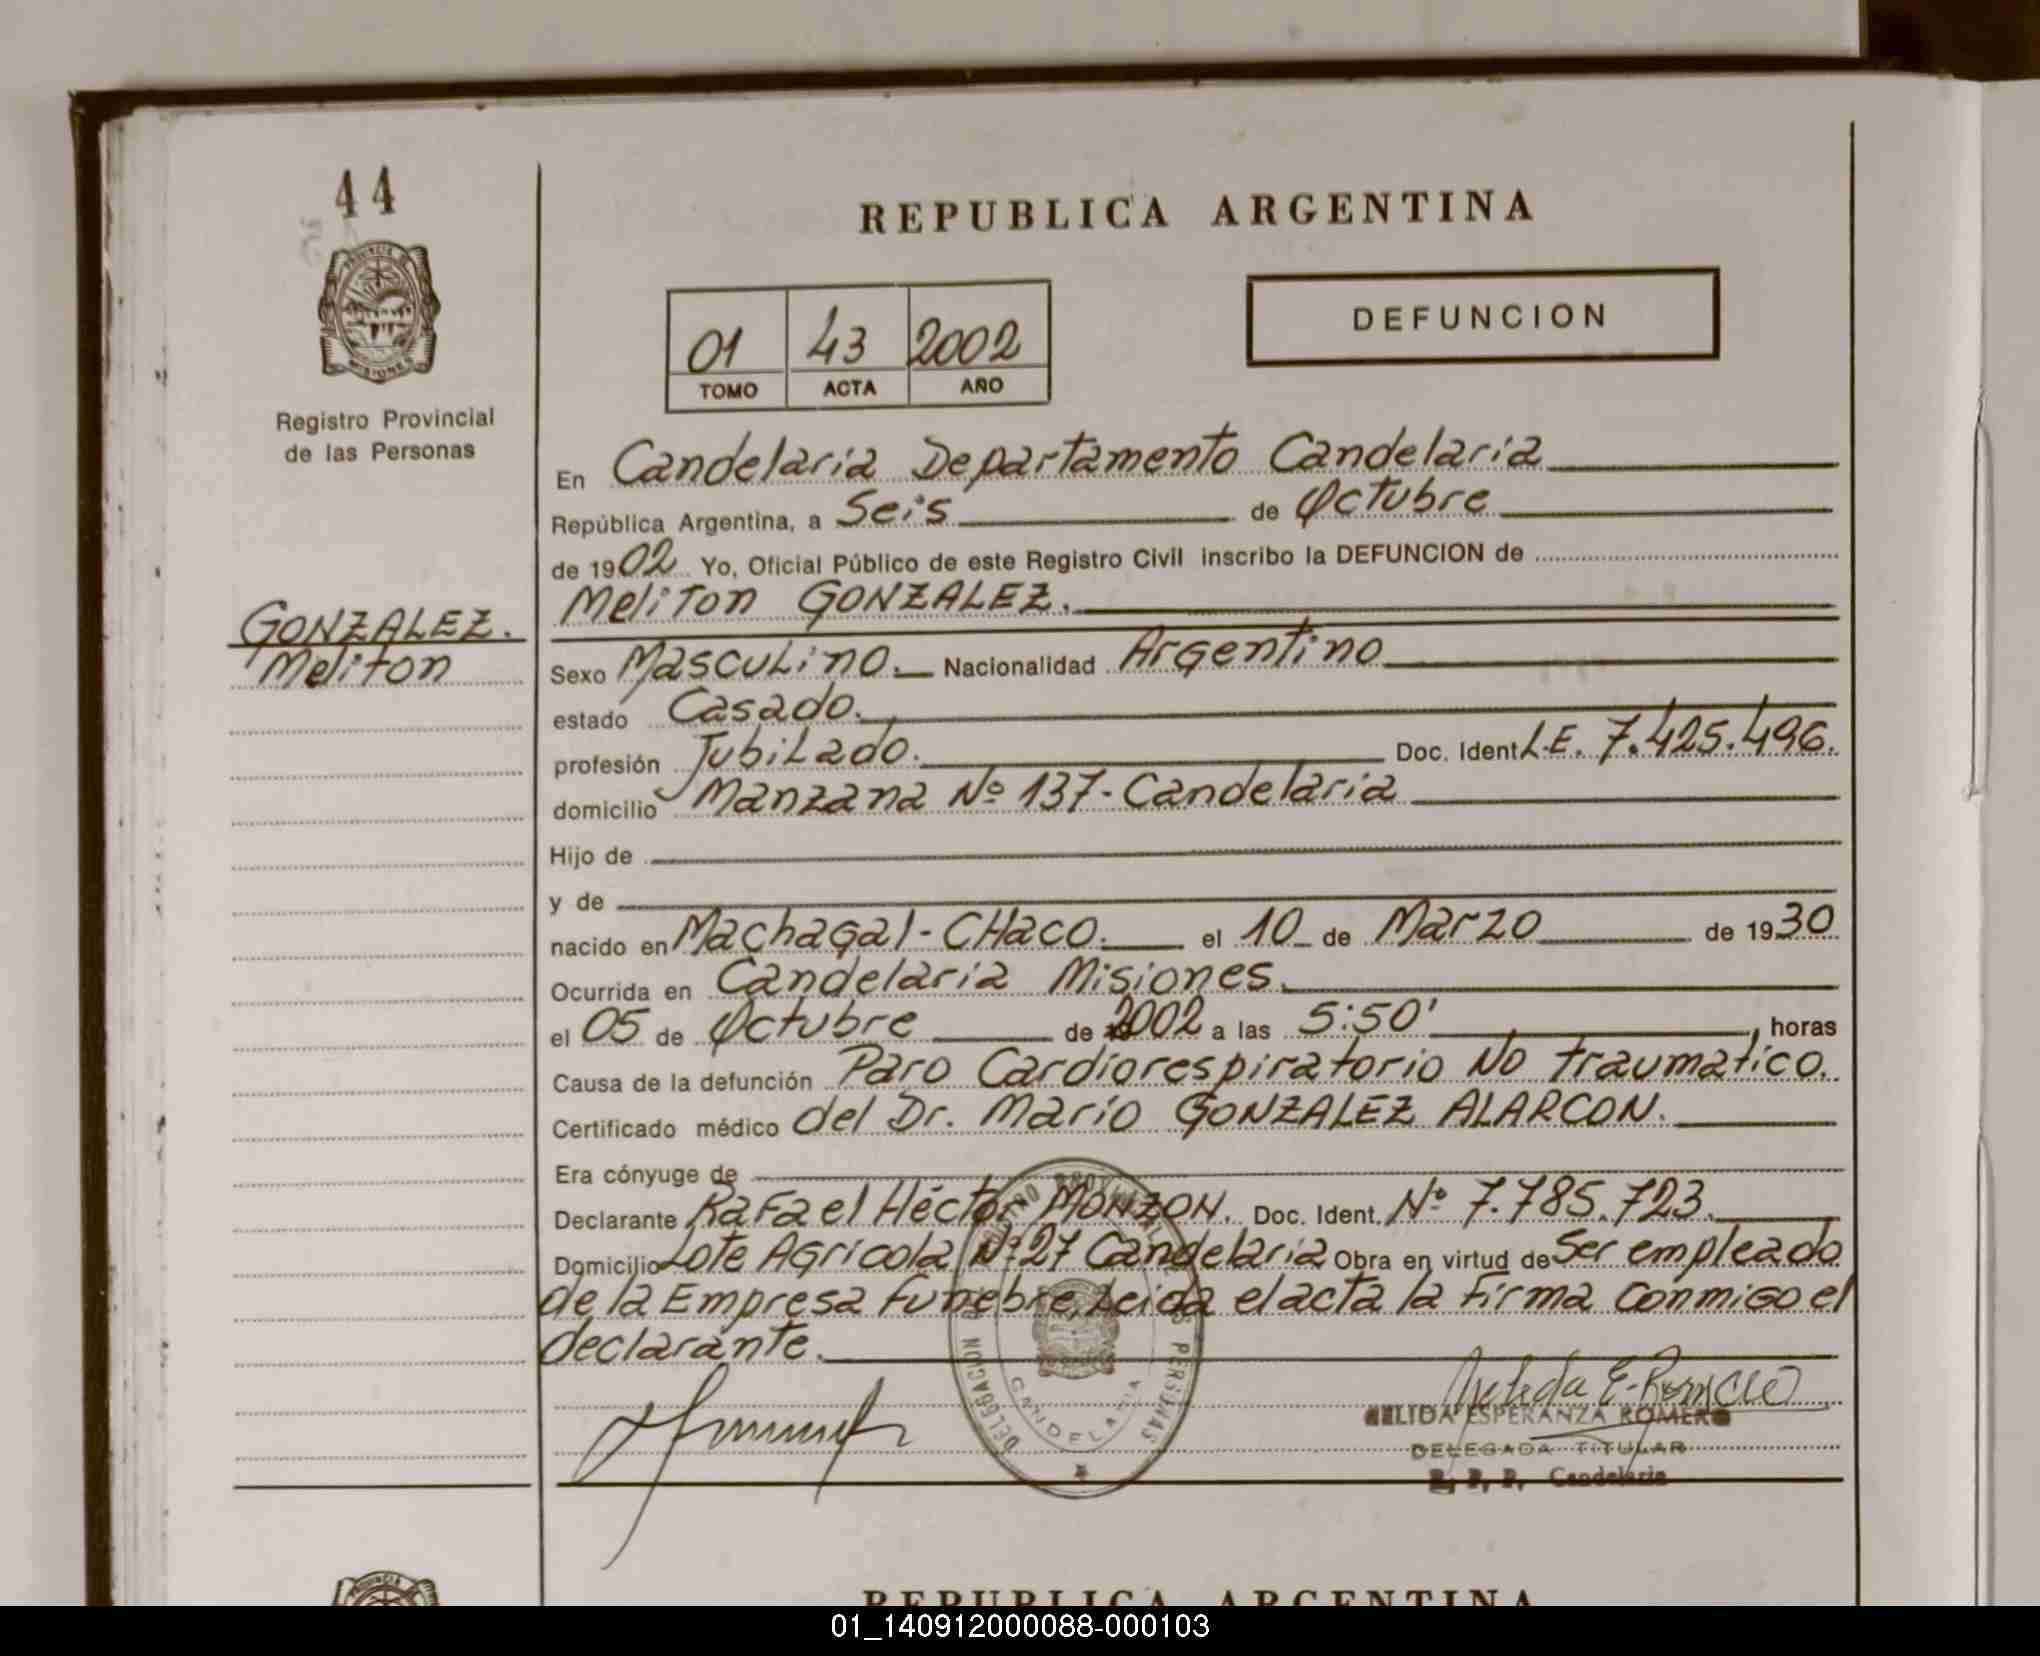 44
PROVINCIA DE
MISIONES
Registro Provincial
de las Personas
GONZALEZ.
Meliton
REPUBLICA ARGENTINA
01 43 2002
TOMO ACTA AÑO
DEFUNCION
En Candelaria Departamento Candelaria
República Argentina, a Seis de Octubre
de 1902 Yo, Oficial Público de este Registro Civil inscribo la DEFUNCION de
Meliton GONZALEZ.
Sexo Masculino. Nacionalidad Argentino
estado Casado.
profesión Jubilado. Doc. Ident L.E. 7.425.496.
domicilio Manzana Nº 137-Candelaria
Hijo de
y de
nacido en Machagal-CHaco. el 10 de Marzo de 1930
Ocurrida en Candelaria Misiones.
el 05 de Octubre de 2002 a las 5:50' , horas
Causa de la defunción Paro Cardiorespiratorio No traumatico.
Certificado médico del Dr. Mario GONZALEZ ALARCON.
Era cónyuge de
Declarante Rafael Héctor MONZON. Doc. Ident. Nº 7.785.723.
Domicilio Lote Agricola Nº 27 Candelaria Obra en virtud de Ser empleado
de la Empresa Funebre, Leida el acta la Firma Conmigo el
declarante.
DELEGACION PERSONAS
CANDELARIA
ESPERANZA ROMERO
DELEGADA TITULAR
Candelaria
PROVINCIA
REPUBLICA ARGENTINA
01_140912000088-000103